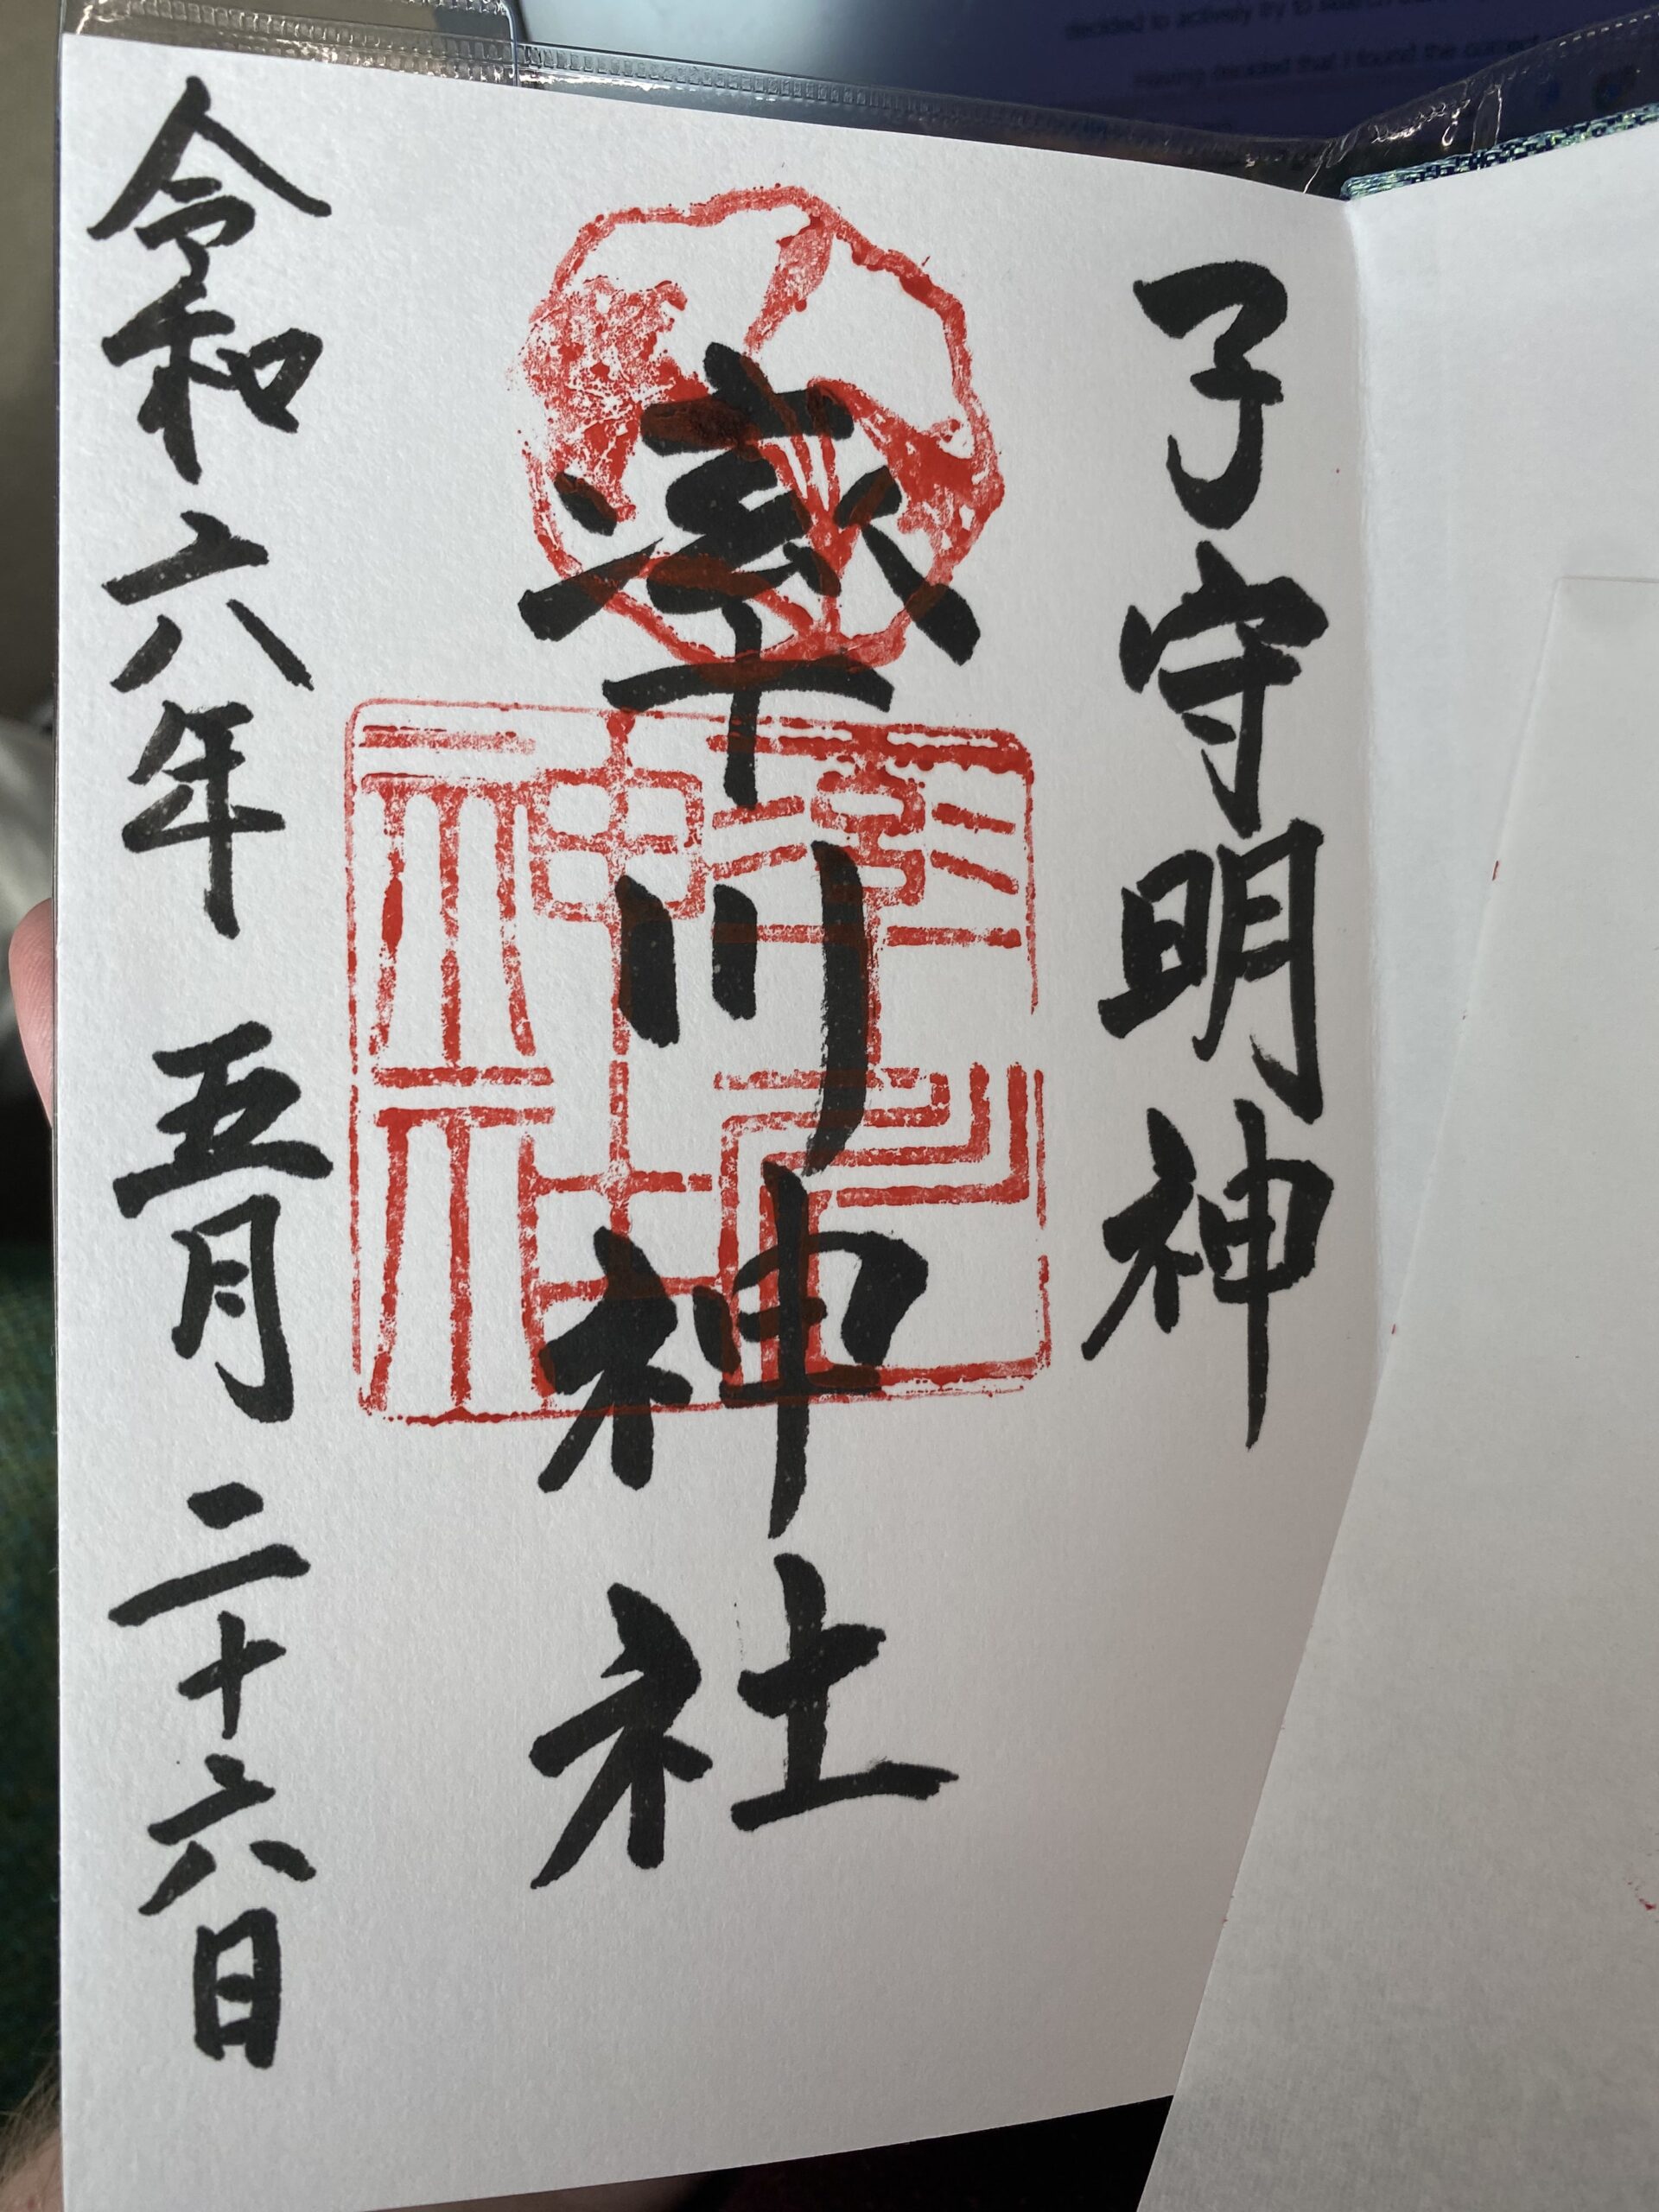 子守明神
率川神社
令和六年 五月 二十六日
率川神社
decided to actively try to
Having decided that I found the correct